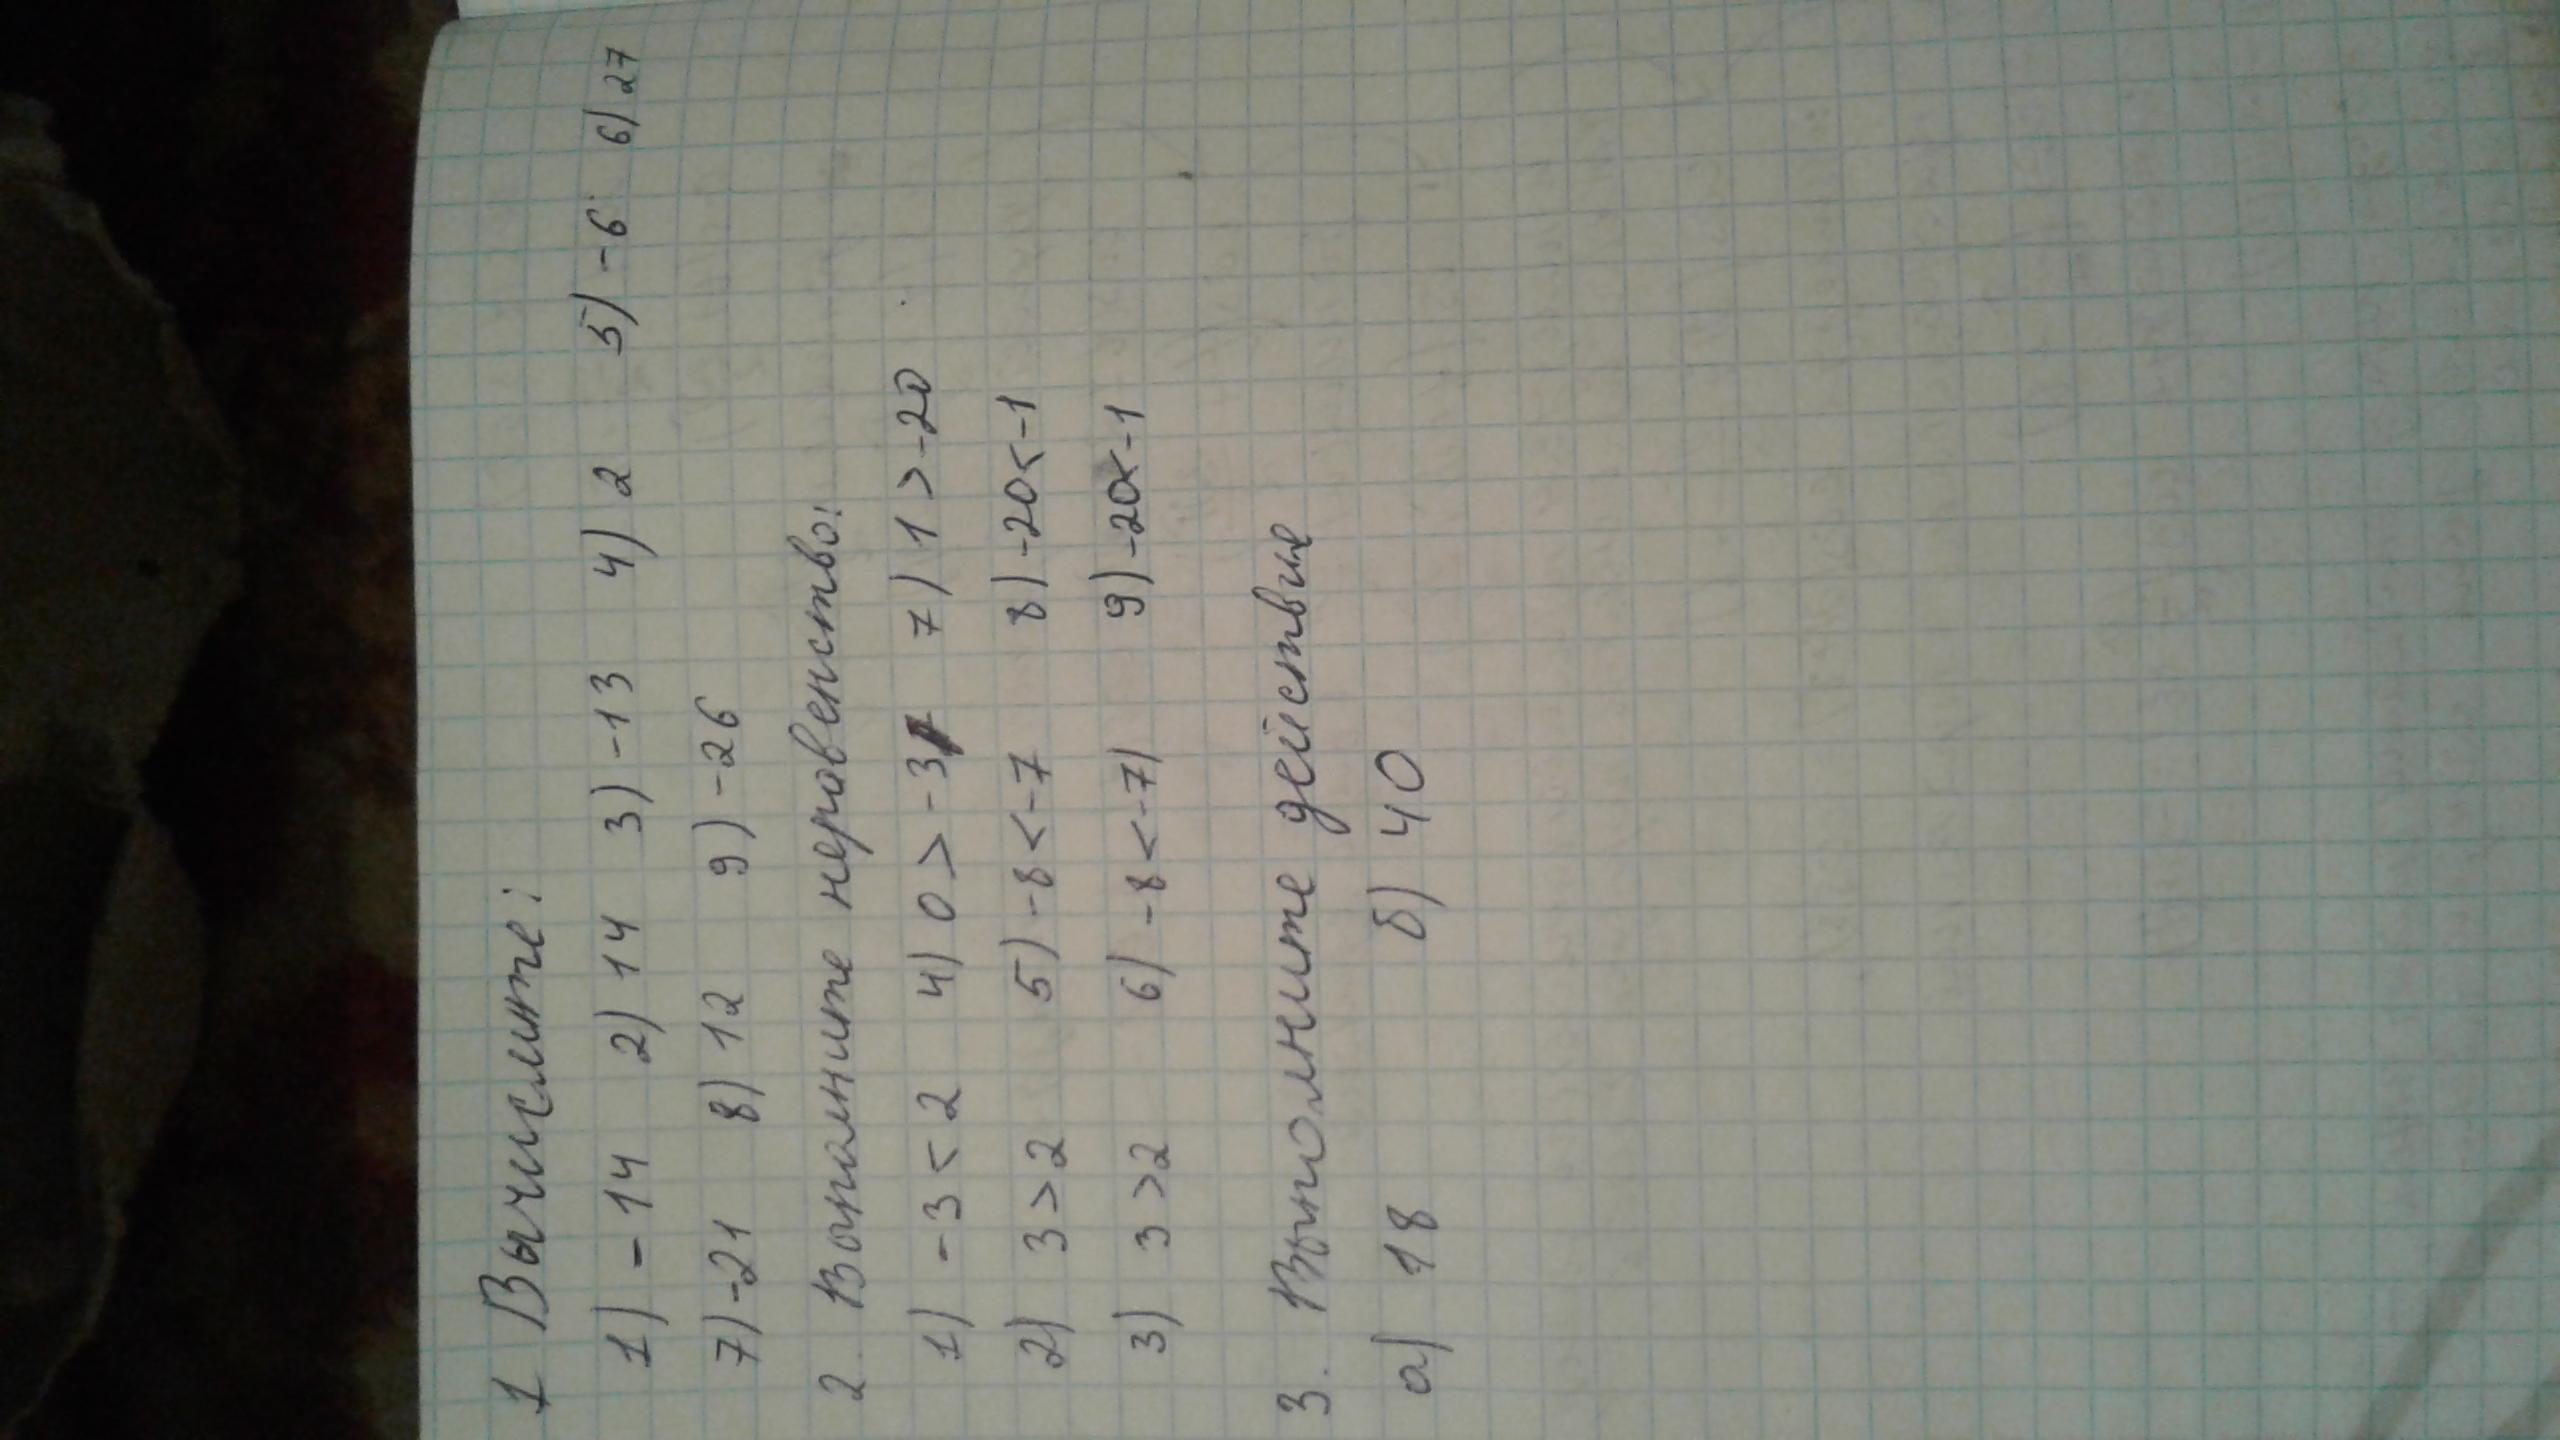 1 Вычислите:
1) -14 2) 14 3) -13 4) 2 5) -6 6) 27
7) -21 8) 12 9) -26
2. Вопалните неровенство:
1) -3 < 2 4) 0 > -3 7) 1 > -20
2) 3 > 2 5) -8 < -7 8) -20 < -1
3) 3 > 2 6) -8 < -7) 9) -20 < -1
3. Выполните действие
а) 18 б) 40